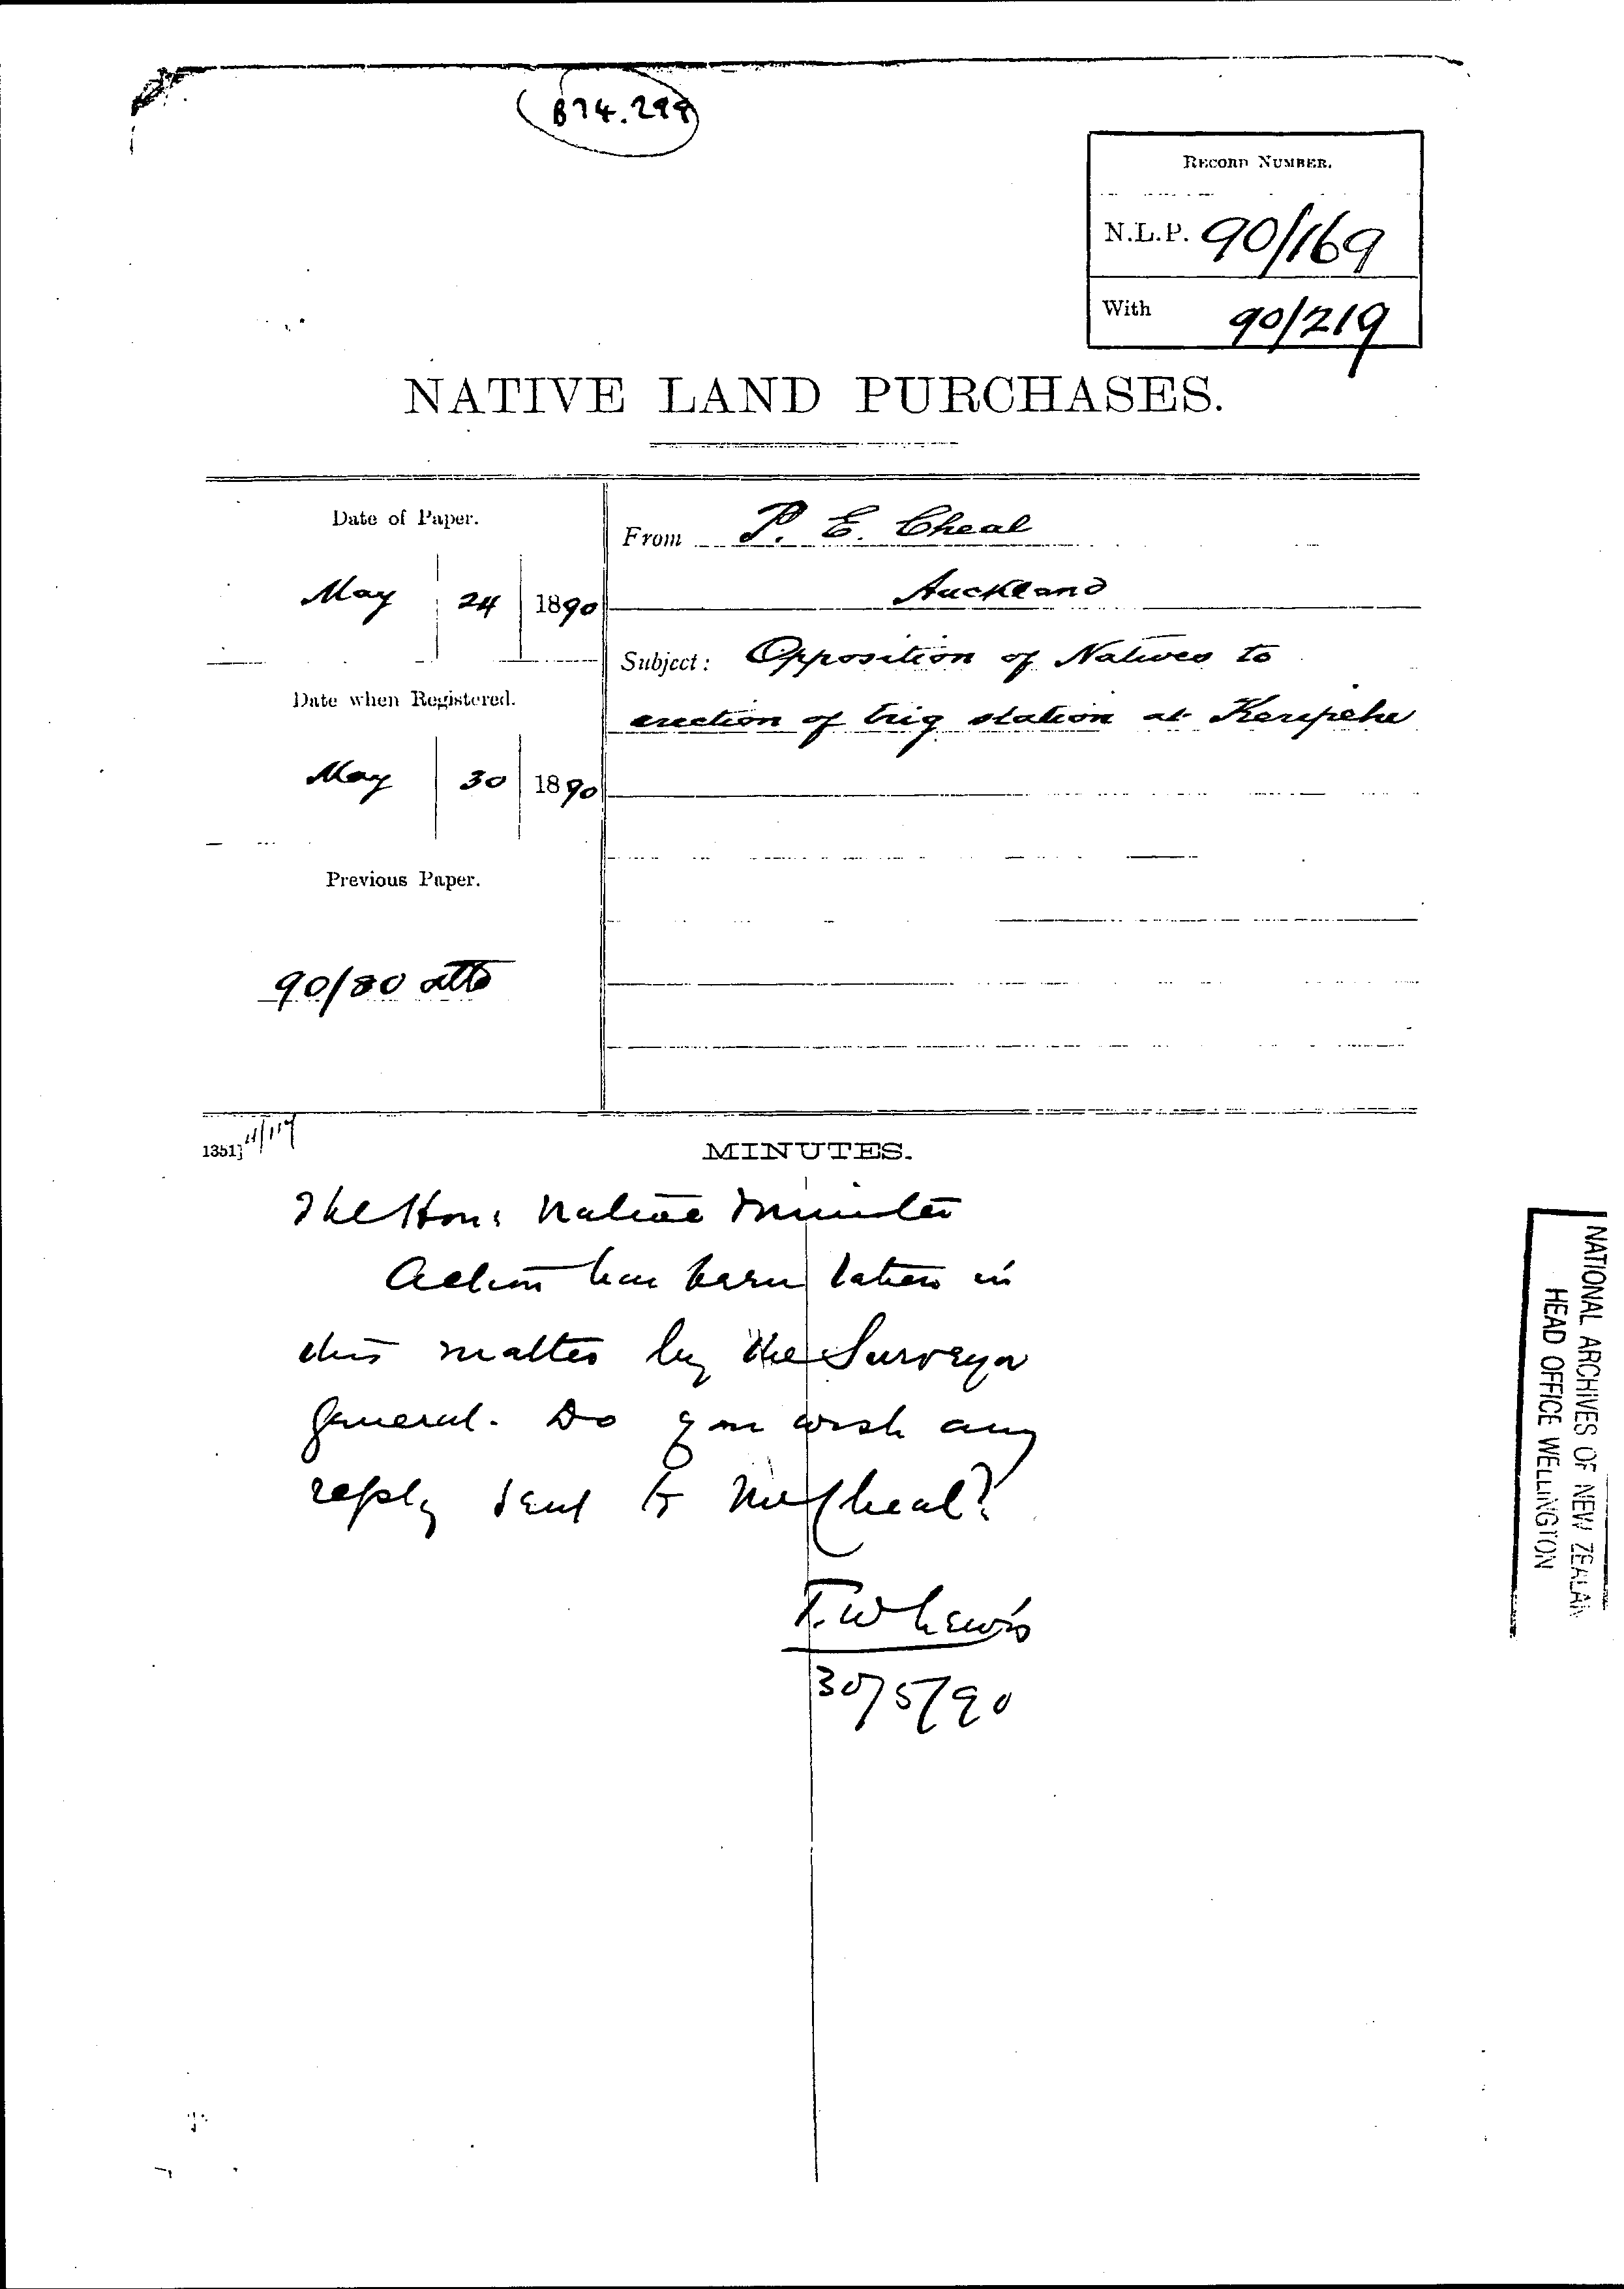 B74.299
RECORD NUMBER.
N.L.P. 90/169
With 90/219
NATIVE LAND PURCHASES.
Date of Paper.
May 24 1890
Date when Registered.
May 30 1890
Previous Paper.
90/80 attd
From P. E. Cheal
Auckland
Subject: Opposition of Natives to
erection of trig station at Kerepehe
1351]
MINUTES.
The Hon: Native Minister
Action has been taken in
this matter by the Surveyor
General. Do you wish any
reply sent to Mr Cheal?
T.W Lewis
30/5/90
NATIONAL ARCHIVES OF NEW ZEALAN
HEAD OFFICE WELLINGTON